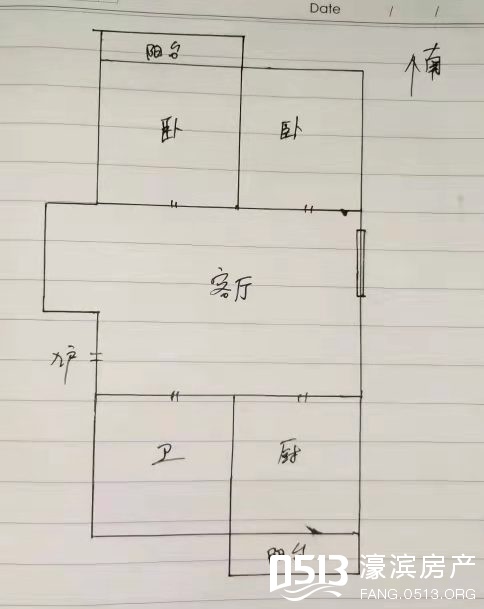 Date / /
阳台
南
卧
卧
客厅
入户
卫
厨
阳台
0513 濠滨房产
FANG.0513.ORG